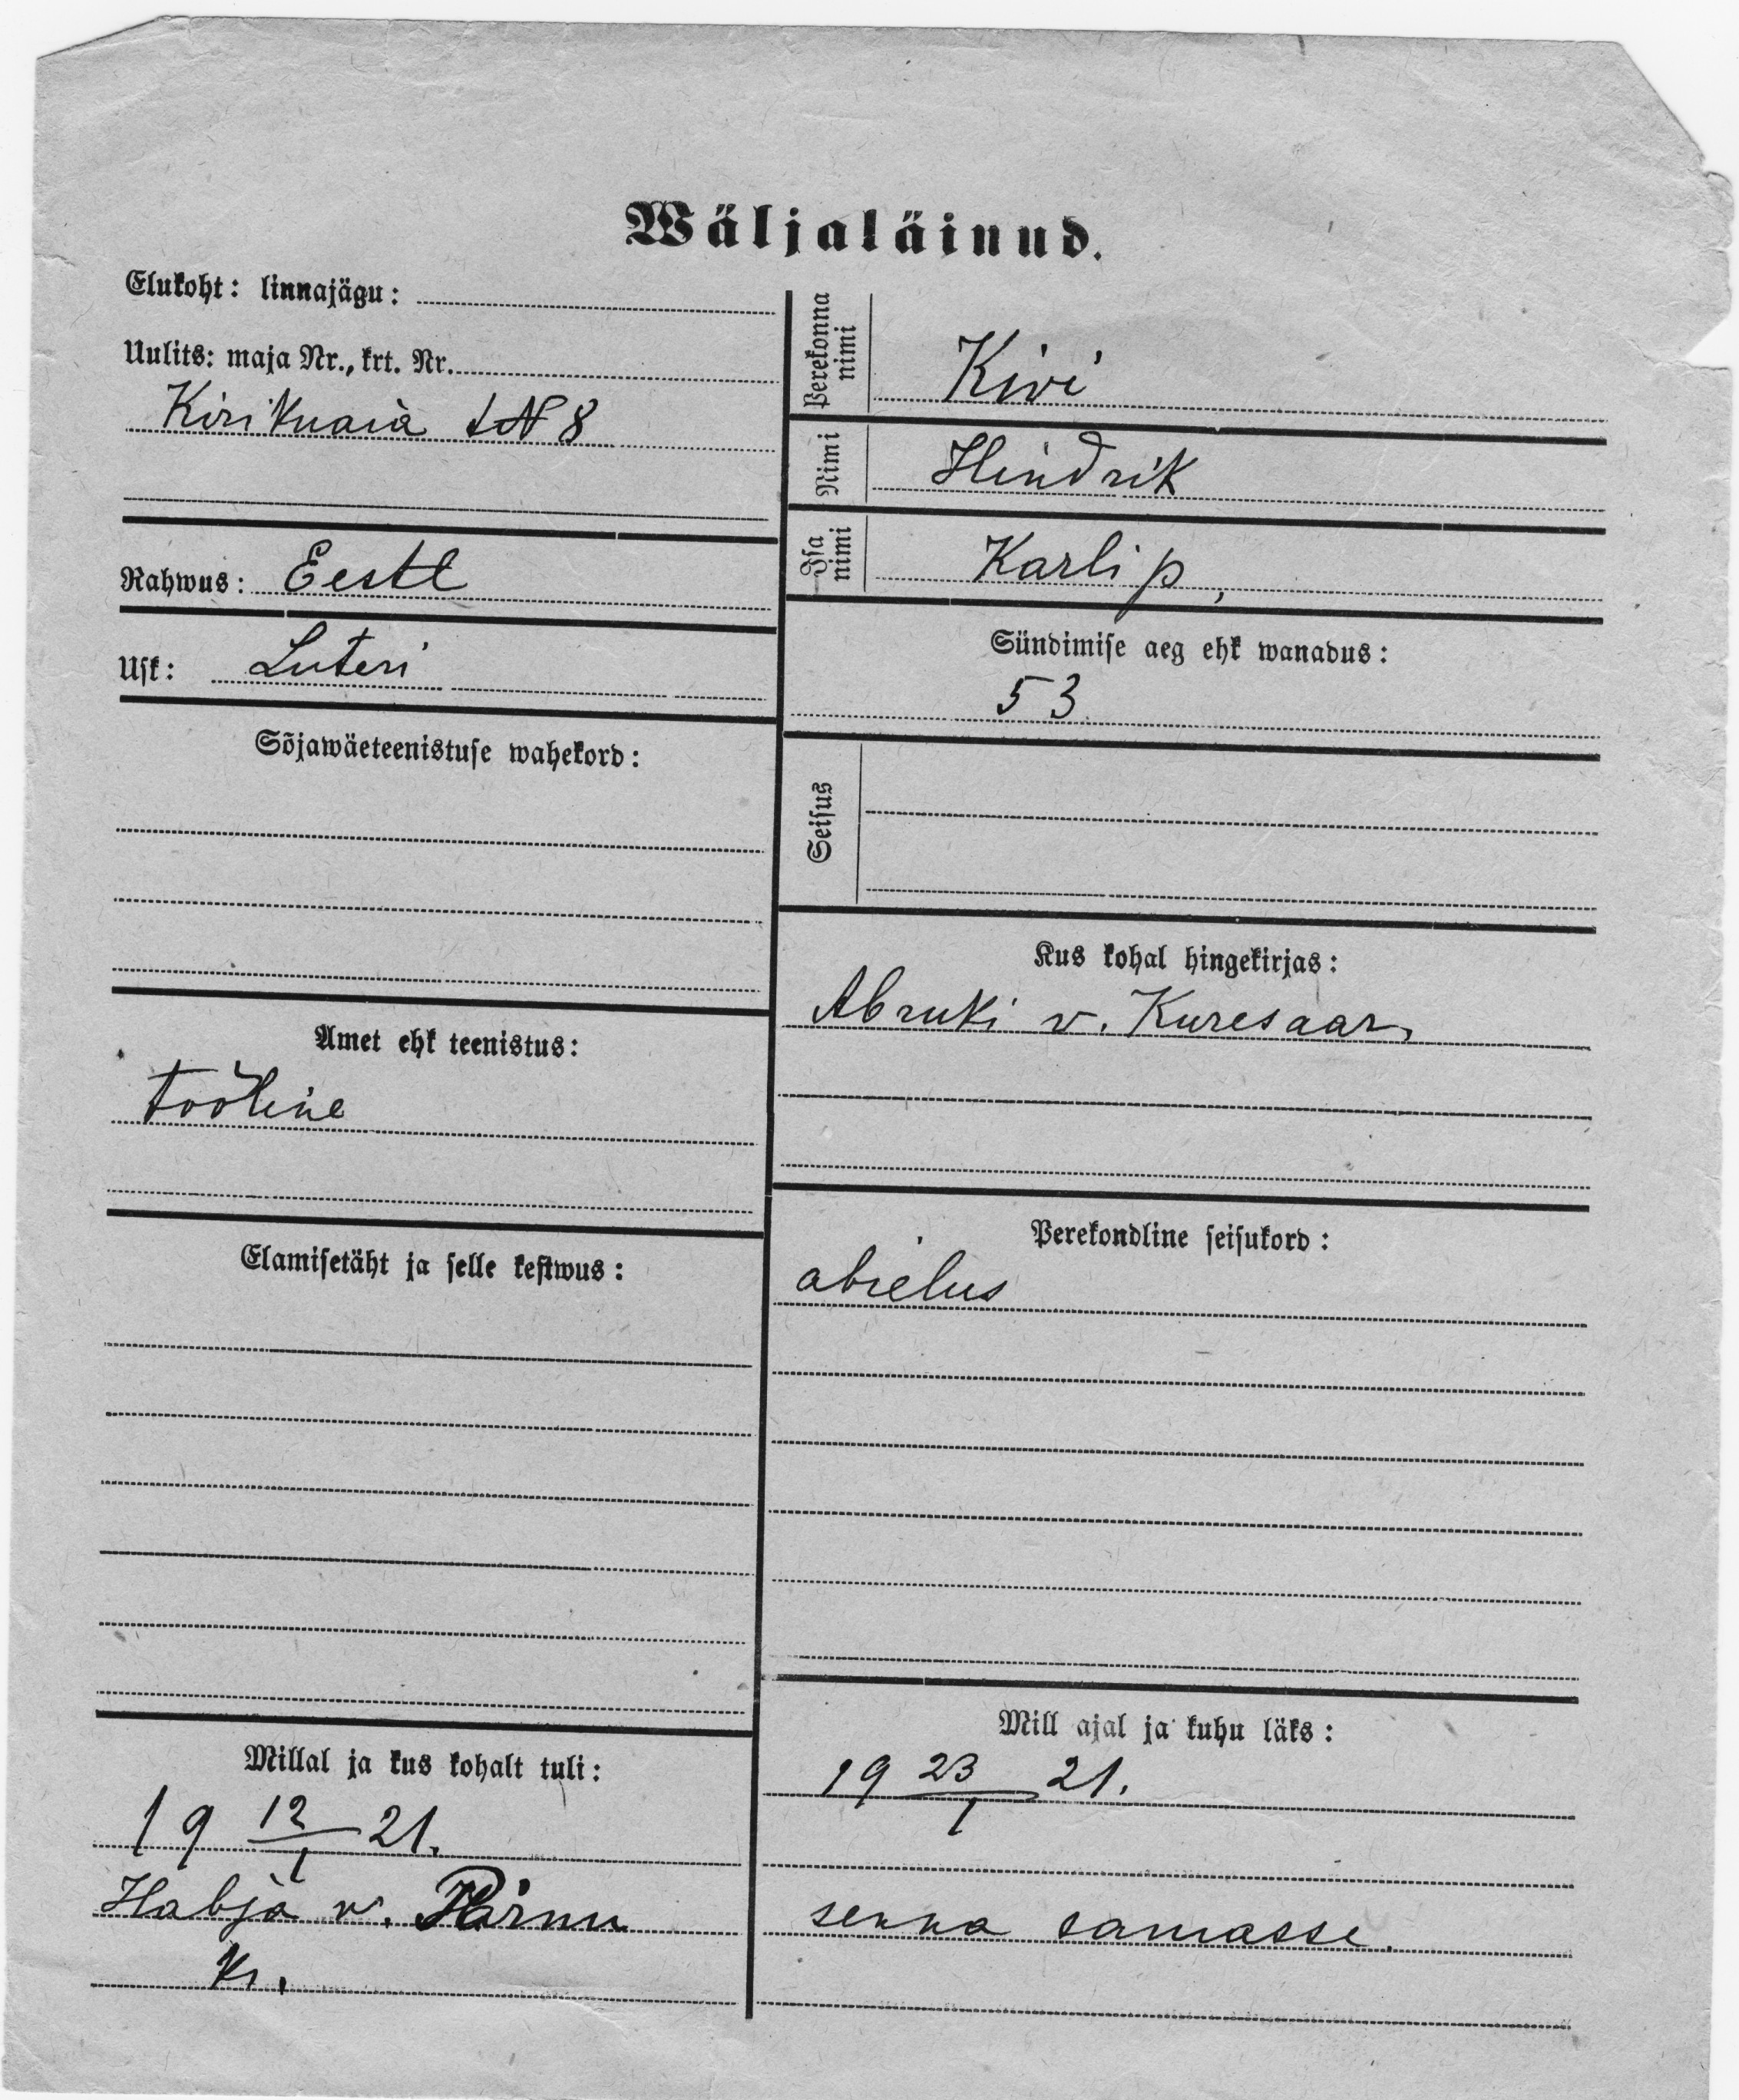 Wäljaläinud.
Elukoht: linnajägu:
Uulits: maja Nr., krt. Nr.
Kirikuaia t N 8
Rahwus: Eestl
Usk: Luteri
Sõjawäeteenistuse wahekord:
Amet ehk teenistus:
tööline
Elamisetäht ja selle kestwus:
Millal ja kus kohalt tuli:
19 12/1 21.
Habja w. Pärnu
Kr.
Perekonna nimi
Kivi
Nimi
Hindrik
Isa nimi
Karli p,
Sündimise aeg ehk wanadus:
53
Seisus
Kus kohal hingekirjas:
Abruki v. Kuresaar,
Perekondline seisukord:
abielus
Mill ajal ja kuhu läks:
19 23/1 21.
senna samasse.